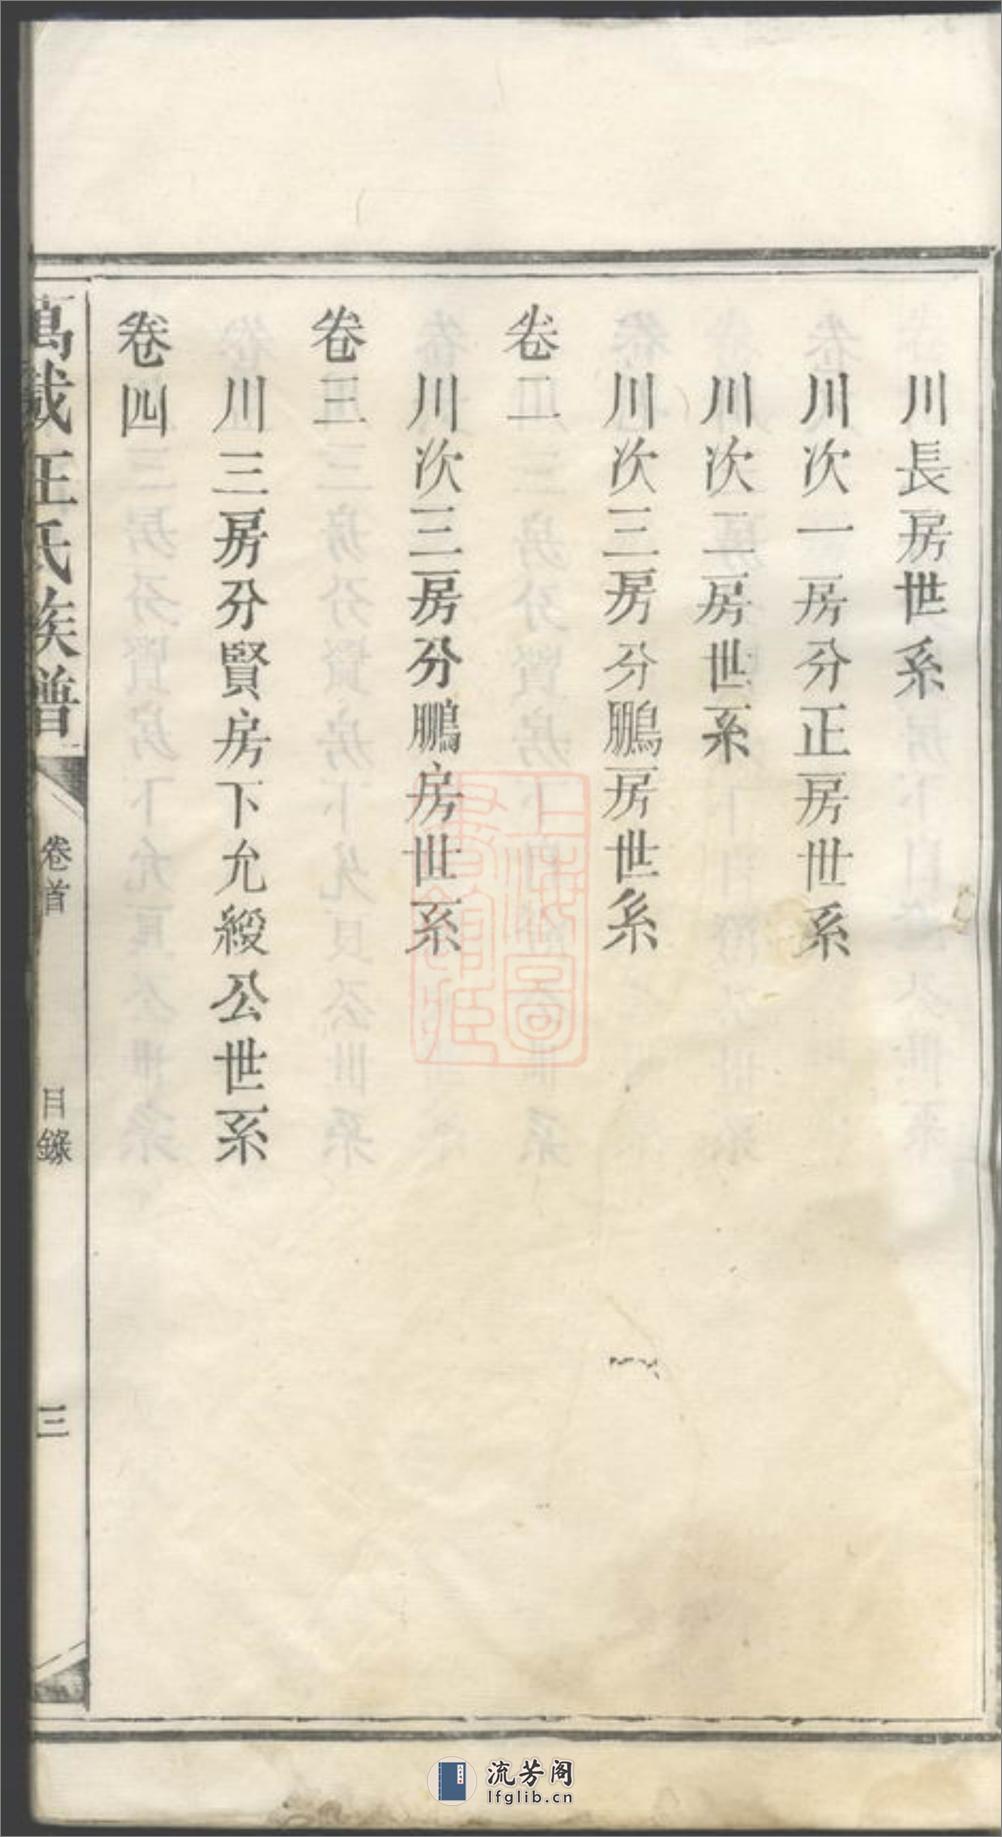 川長房世系
川次一房分正房世系
川次二房世系
川次三房分鵬房世系
卷二
川次三房分鵬房世系
卷三
川三房分賢房下允綬公世系
卷四
萬載王氏族譜
卷首
目錄
三
上海圖書館藏
流芳阁
lfglib.cn